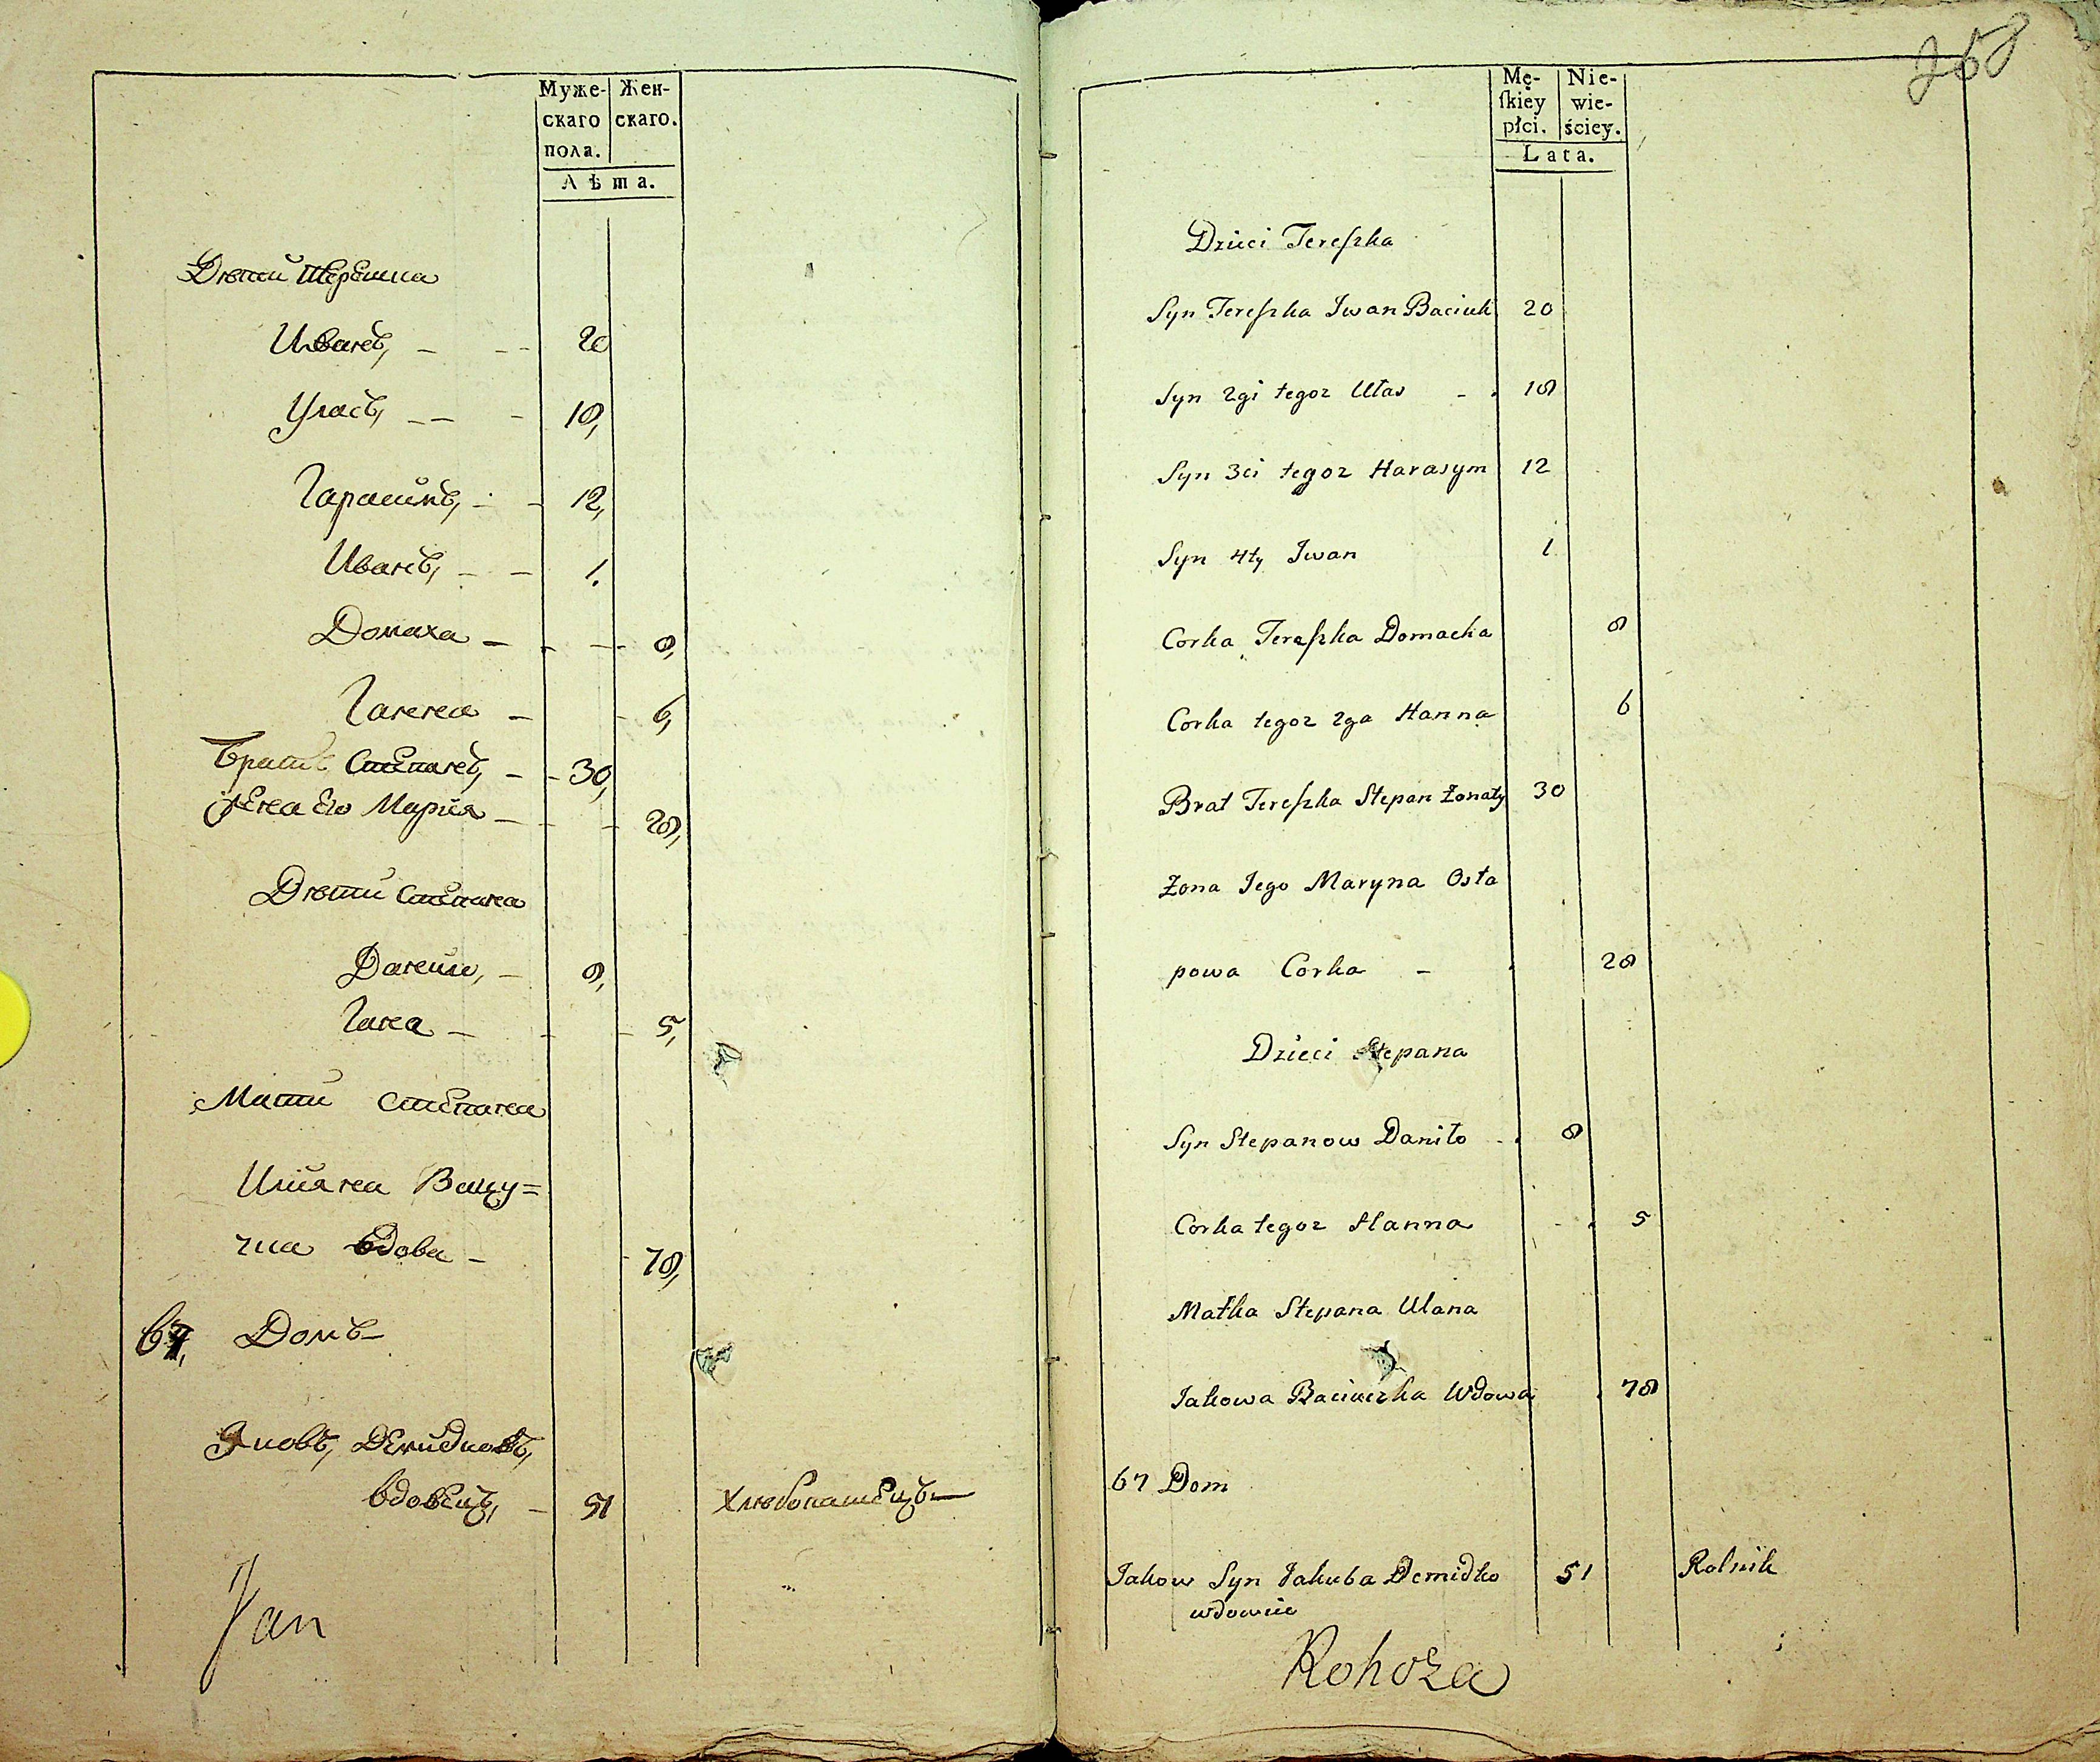 Муже-
скаго
пола.
Жен-
скаго.
Лѣта.
Дѣти Терешка
Иванъ, 20
Уласъ, 18,
Гарасимъ, 12,
Иванъ, 1.
Домаха 8,
Ганна 6,
Братъ Степанъ, 30,
Жена Его Мария 28,
Дѣти Степана
Данило, 8,
Ганна 5,
Мати Степана
Ульяна Вацу=
чка вдова 78,
67, Домъ
Яковъ, Демидковъ,
вдовецъ, 51 Хлебопашецъ
Jan
258
Mę-
ſkiey
płci.
Nie-
wie-
ściey.
Lata.
Dzieci Tereſzka
Syn Tereſzka Iwan Baciuk 20
Syn 2gi tegoz Ułas 18
Syn 3ci tegoz Harasym 12
Syn 4ty Iwan 1
Corka Tereſzka Domacha 8
Corka tegoz 2ga Hanna 6
Brat Tereſzka Stepan Żonaty 30
Żona Jego Maryna Osta
powa Corka 28
Dzieci Stepana
Syn Stepanow Daniło 8
Corka tegoz Hanna 5
Matka Stepana Ulana
Jakowa Baciuczka Wdowa 78
67 Dom
Jakow Syn Jakuba Demidko 51 Rolnik
wdowiec
Rohoza